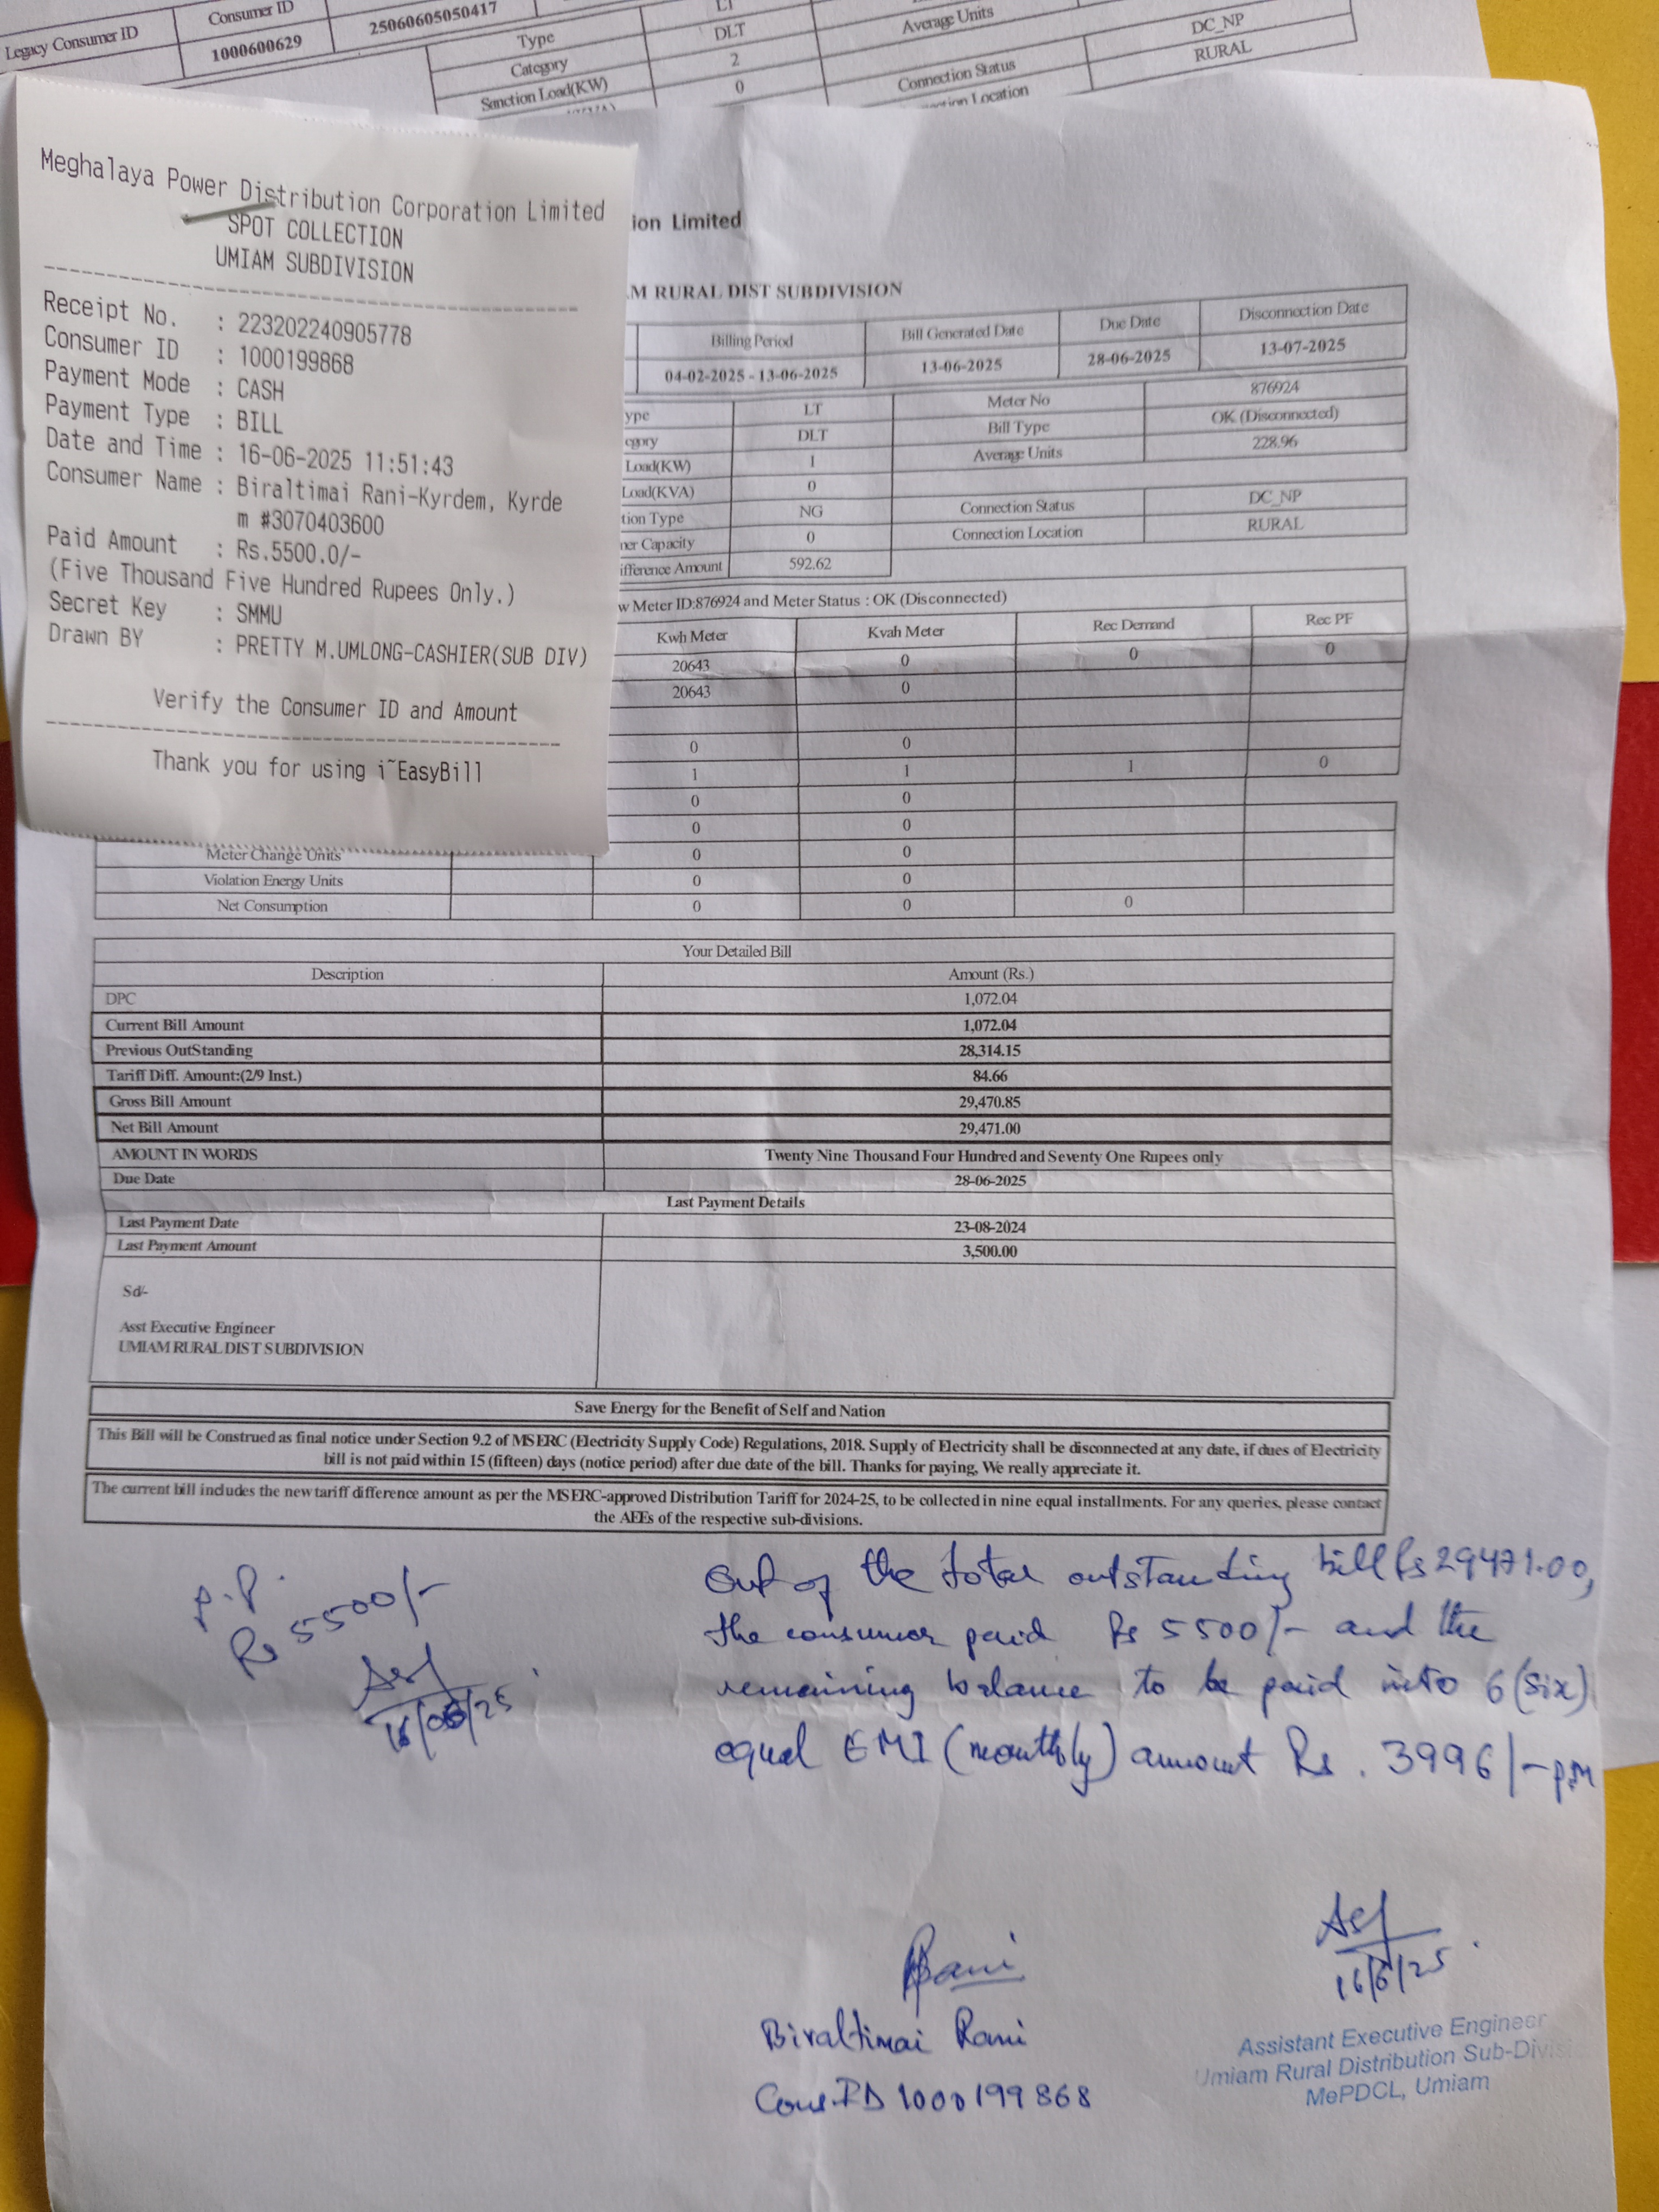 Legacy Consumer ID
Consumer ID
1000600629
25060605050417
Type
LT
Average Units
Category
DLT
Sanction Load(KW)
2
Connection Status
DC_NP
0
RURAL
Meghalaya Power Distribution Corporation Limited
SPOT COLLECTION
UMIAM SUBDIVISION
Receipt No. : 223202240905778
Consumer ID : 1000199868
Payment Mode : CASH
Payment Type : BILL
Date and Time : 16-06-2025 11:51:43
Consumer Name : Biraltimai Rani-Kyrdem, Kyrde
m #3070403600
Paid Amount : Rs.5500.0/-
(Five Thousand Five Hundred Rupees Only.)
Secret Key : SMMU
Drawn BY : PRETTY M.UMLONG-CASHIER(SUB DIV)
Verify the Consumer ID and Amount
Thank you for using i~EasyBill
ion Limited
M RURAL DIST SUBDIVISION
Billing Period Bill Generated Date Due Date Disconnection Date
04-02-2025 - 13-06-2025 13-06-2025 28-06-2025 13-07-2025
ype LT Meter No 876924
egory DLT Bill Type OK (Disconnected)
Load(KW) 1 Average Units 228.96
Load(KVA) 0
tion Type NG Connection Status DC_NP
ner Capacity 0 Connection Location RURAL
ifference Amount 592.62
w Meter ID:876924 and Meter Status : OK (Disconnected)
Kwh Meter Kvah Meter Rec Demand Rec PF
20643 0 0 0
20643 0
0 0
1 1 1 0
0 0
0 0
Meter Change Units 0 0
Violation Energy Units 0 0
Net Consumption 0 0 0
Your Detailed Bill
Description Amount (Rs.)
DPC 1,072.04
Current Bill Amount 1,072.04
Previous OutStanding 28,314.15
Tariff Diff. Amount:(2/9 Inst.) 84.66
Gross Bill Amount 29,470.85
Net Bill Amount 29,471.00
AMOUNT IN WORDS Twenty Nine Thousand Four Hundred and Seventy One Rupees only
Due Date 28-06-2025
Last Payment Details
Last Payment Date 23-08-2024
Last Payment Amount 3,500.00
Sd/-
Asst Executive Engineer
UMIAM RURAL DIST SUBDIVISION
Save Energy for the Benefit of Self and Nation
This Bill will be Construed as final notice under Section 9.2 of MSERC (Electricity Supply Code) Regulations, 2018. Supply of Electricity shall be disconnected at any date, if dues of Electricity
bill is not paid within 15 (fifteen) days (notice period) after due date of the bill. Thanks for paying, We really appreciate it.
The current bill includes the new tariff difference amount as per the MSERC-approved Distribution Tariff for 2024-25, to be collected in nine equal installments. For any queries, please contact
the AEEs of the respective sub-divisions.
p.p
Rs 5500/-
16/06/25
Out of the total outstanding bill Rs 29471.00,
the consumer paid Rs 5500/- and the
remaining balance to be paid into 6 (six)
equal EMI (monthly) amount Rs. 3996/- pm
Rani
Biraltimai Rani
Cons.ID 1000199868
16/6/25
Assistant Executive Engineer
Umiam Rural Distribution Sub-Divis
MePDCL, Umiam